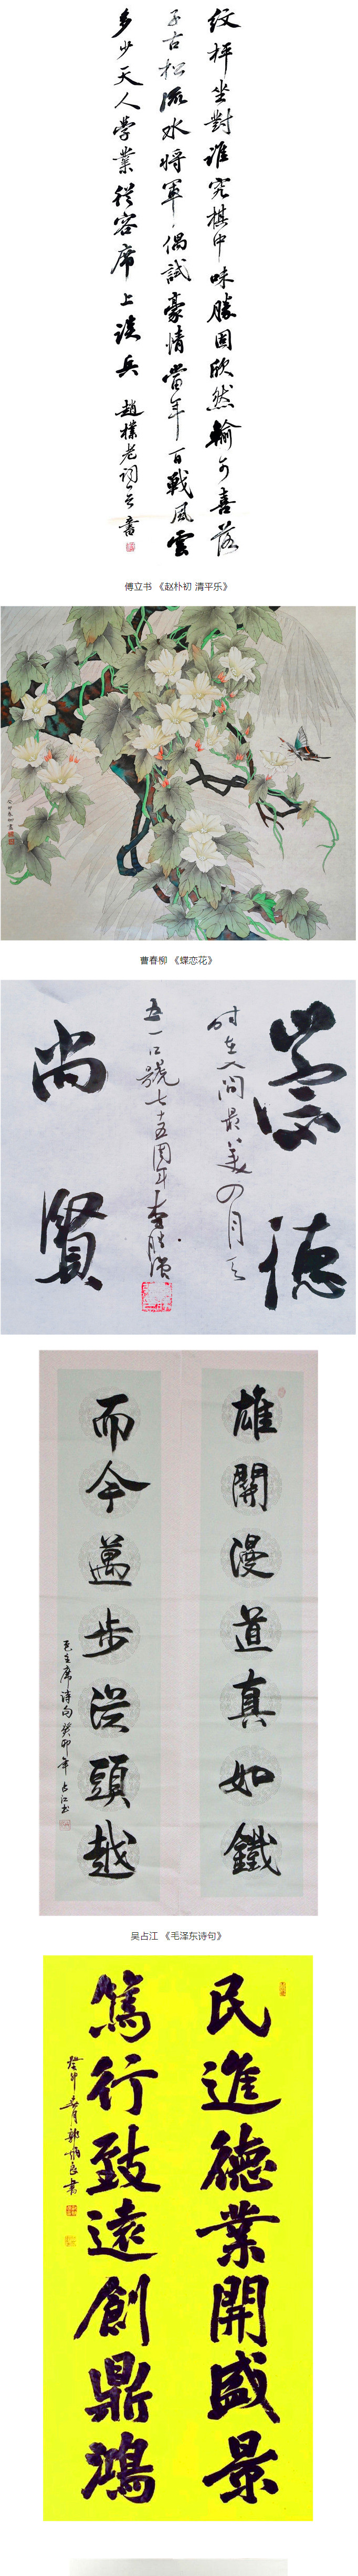 纹枰坐對誰究棋中味勝固欣然輸可喜落
子古松流水將軍偶試豪情當年百戰風雲
多少天人學業從容席上談兵 趙樸老詞
傅立书 《赵朴初 清平乐》
癸卯春柳畫
曹春柳 《蝶恋花》
崇德
时在人间最美四月天
五一口號七十五周年
尚賢
雄關漫道真如鐵
而今邁步從頭越
毛主席诗句癸卯年占江书
吴占江 《毛泽东诗句》
民進德業開盛景
篤行致遠創鼎鴻
癸卯春月郭